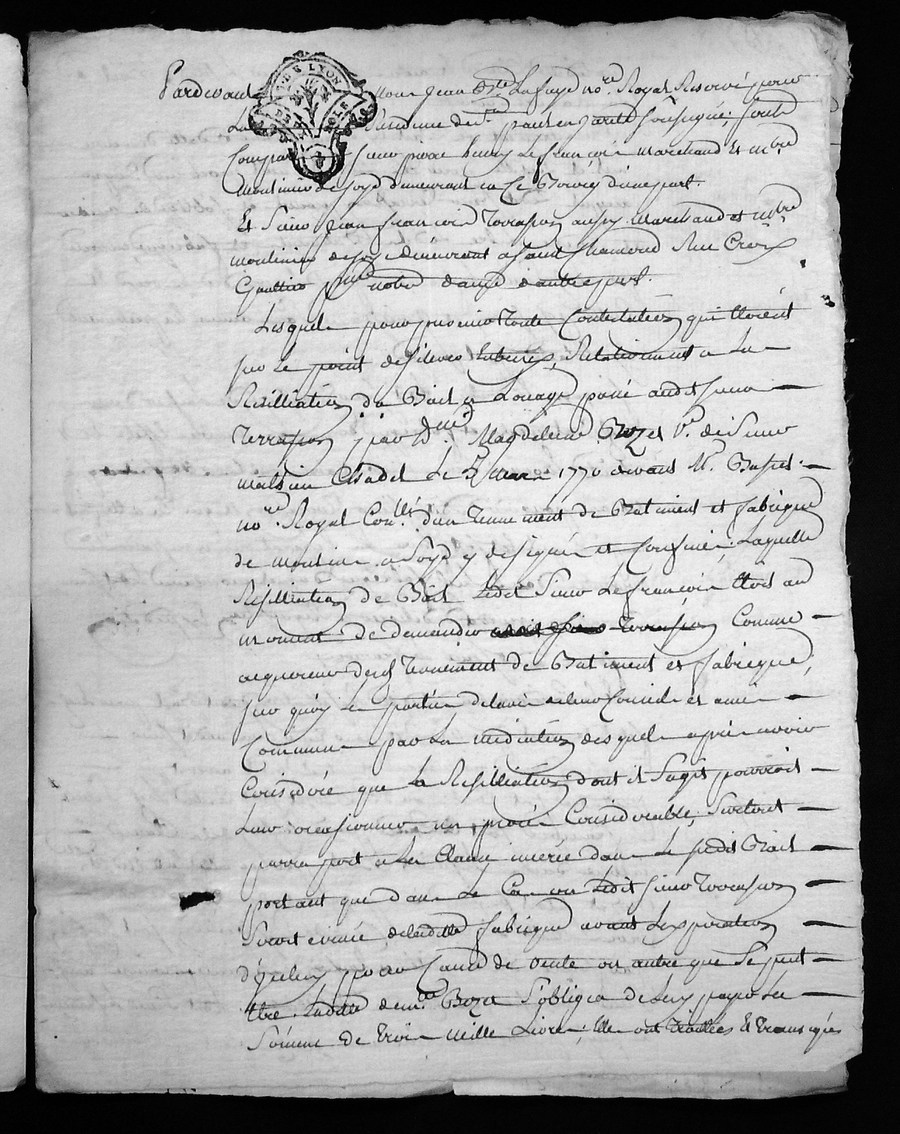 Pardevant nous Jean Bte Lafaye nore Royal Reservé pour
La Parroisse de st paul en Jarest soussigné, furent
Compar sieur pierre henry Lefrançois marchand Et mtre
moulinier de soye demeurant en ce Bourg d'une part.
Et sieur Jean françois Terrasson aussy marchand et mtre
moulinier de soye demeurant a saint Chamond Rue Croix
Gauttier pnte notre dame d'autre part.
Lesquels pour prevenir toute Contestation qui Etoient
sur Le point de s'elever entreux, Relativement a La
Resilliation du Bail a Louage passé audit sieur
Terrasson par dlle Magdeleine Bozet ve de sieur
mathieu Chadel Le 5 mars 1770 devant Me
nore Royal Conler d'un tennement de Batiment et fabrique
de moulins a soye y designés et Confinés. Laquelle
Resilliation de Bail Ledit sieur Lefrançois Etoit au
moment de demander Comme
acquereur desd tennement de Batiment et fabrique,
sur quoy Les parties de l'avis de leur Conseils et amis
Communs par La mediation desquels après avoir
Consideré que La Resilliation dont il s'agit pourroit
Leur occasionner un procès Considerable, surtout
par raport a La Clause inserée dans Le susdit Bail
portant que dans Le Cas ou Ledit sieur Terrasson
seroit evincé de ladite fabrique avant L'expiration
d'iceluy pour Cause de vente ou autre que se put
Etre Ladite demlle Bozet s'obligea de Luy payer La
somme de trois mille Livres, Elle ont traittés Et transigés